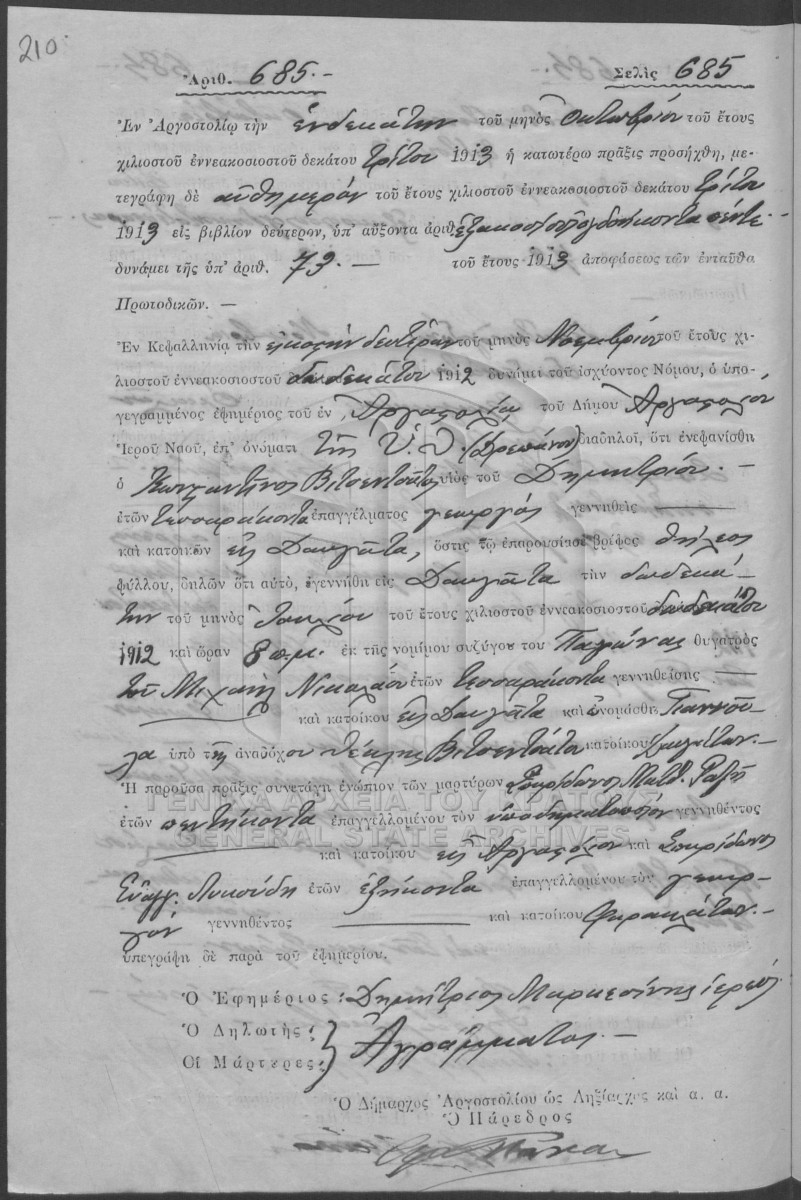 210
Ἀριθ. 685.— Σελὶς 685
Ἐν Ἀργοστολίῳ τὴν ἑνδεκάτην τοῦ μηνὸς Ὀκτωβρίου τοῦ ἔτους
χιλιοστοῦ ἐννεακοσιοστοῦ δεκάτου τρίτου 1913 ἡ κατωτέρω πρᾶξις προσήχθη, με-
τεγράφη δὲ αὐθημερὸν τοῦ ἔτους χιλιοστοῦ ἐννεακοσιοστοῦ δεκάτου τρίτου
1913 εἰς βιβλίον δεύτερον, ὑπ' αὔξοντα ἀριθ. ἑξακοσιοστὸν ὀγδοήκοντα πέντε
δυνάμει τῆς ὑπ' ἀριθ. 73.— τοῦ ἔτους 1913 ἀποφάσεως τῶν ἐνταῦθα
Πρωτοδικῶν.—
Ἐν Κεφαλληνίᾳ τὴν εἰκοστὴν δευτέραν τοῦ μηνὸς Νοεμβρίου τοῦ ἔτους χι-
λιοστοῦ ἐννεακοσιοστοῦ δωδεκάτου 1912 δυνάμει τοῦ ἰσχύοντος Νόμου, ὁ ὑπο-
γεγραμμένος ἐφημέριος τοῦ ἐν Ἀργοστολίῳ τοῦ Δήμου Ἀργοστολίου
Ἱεροῦ Ναοῦ, ἐπ' ὀνόματι τῆς Ὑ. Θ. (Δρεπάνου) διαδηλοῖ, ὅτι ἐνεφανίσθη
ὁ Κωνσταντῖνος Βιτσεντζᾶτος υἱὸς τοῦ Δημητρίου.—
ἐτῶν τεσσαράκοντα ἐπαγγέλματος γεωργὸς γεννηθεὶς —
καὶ κατοικῶν εἰς Δαυγᾶτα, ὅστις τῷ ἐπαρουσίασε βρέφος θήλεος
φύλλου, δηλῶν ὅτι αὐτὸ, ἐγεννήθη εἰς Δαυγᾶτα τὴν δωδεκά-
την τοῦ μηνὸς Ἰουλίου τοῦ ἔτους χιλιοστοῦ ἐννεακοσιοστοῦ δωδεκάτου
1912 καὶ ὥραν 8 π.μ. ἐκ τῆς νομίμου συζύγου του Παγώνας θυγατρὸς
τοῦ Μιχαὴλ Νικολάου ἐτῶν τεσσαράκοντα γεννηθείσης —
— καὶ κατοίκου εἰς Δαυγᾶτα καὶ ὠνομάσθη Γιαννού-
λα ὑπὸ τῆς ἀναδόχου Θέκλης Βιτσεντζάτου κατοίκου Δαυγάτων.—
Ἡ παροῦσα πρᾶξις συνετάγη ἐνώπιον τῶν μαρτύρων Σπυρίδωνος Ματθ. Ραζῆ
ΓΕΝΙΚΑ ΑΡΧΕΙΑ ΤΟΥ ΚΡΑΤΟΥΣ
ἐτῶν πεντήκοντα ἐπαγγελλομένου τὸν ὑποδηματοποιὸν γεννηθέντος
GENERAL STATE ARCHIVES
— καὶ κατοίκου εἰς Ἀργοστόλιον καὶ Σπυρίδωνος
Εὐαγγ. Λυκούδη ἐτῶν ἑξήκοντα ἐπαγγελλομένου τὸν γεωρ-
γὸν γεννηθέντος — καὶ κατοίκου Φαρακλάτων.—
ὑπεγράφη δὲ παρὰ τοῦ ἐφημερίου.
Ὁ Ἐφημέριος: Δημήτριος Μαρκεσίνης ἱερεύς
Ὁ Δηλωτής:
Οἱ Μάρτυρες: } Ἀγράμματος.—
Ὁ Δήμαρχος Ἀργοστολίου ὡς Ληξίαρχος καὶ α. α.
Ὁ Πάρεδρος